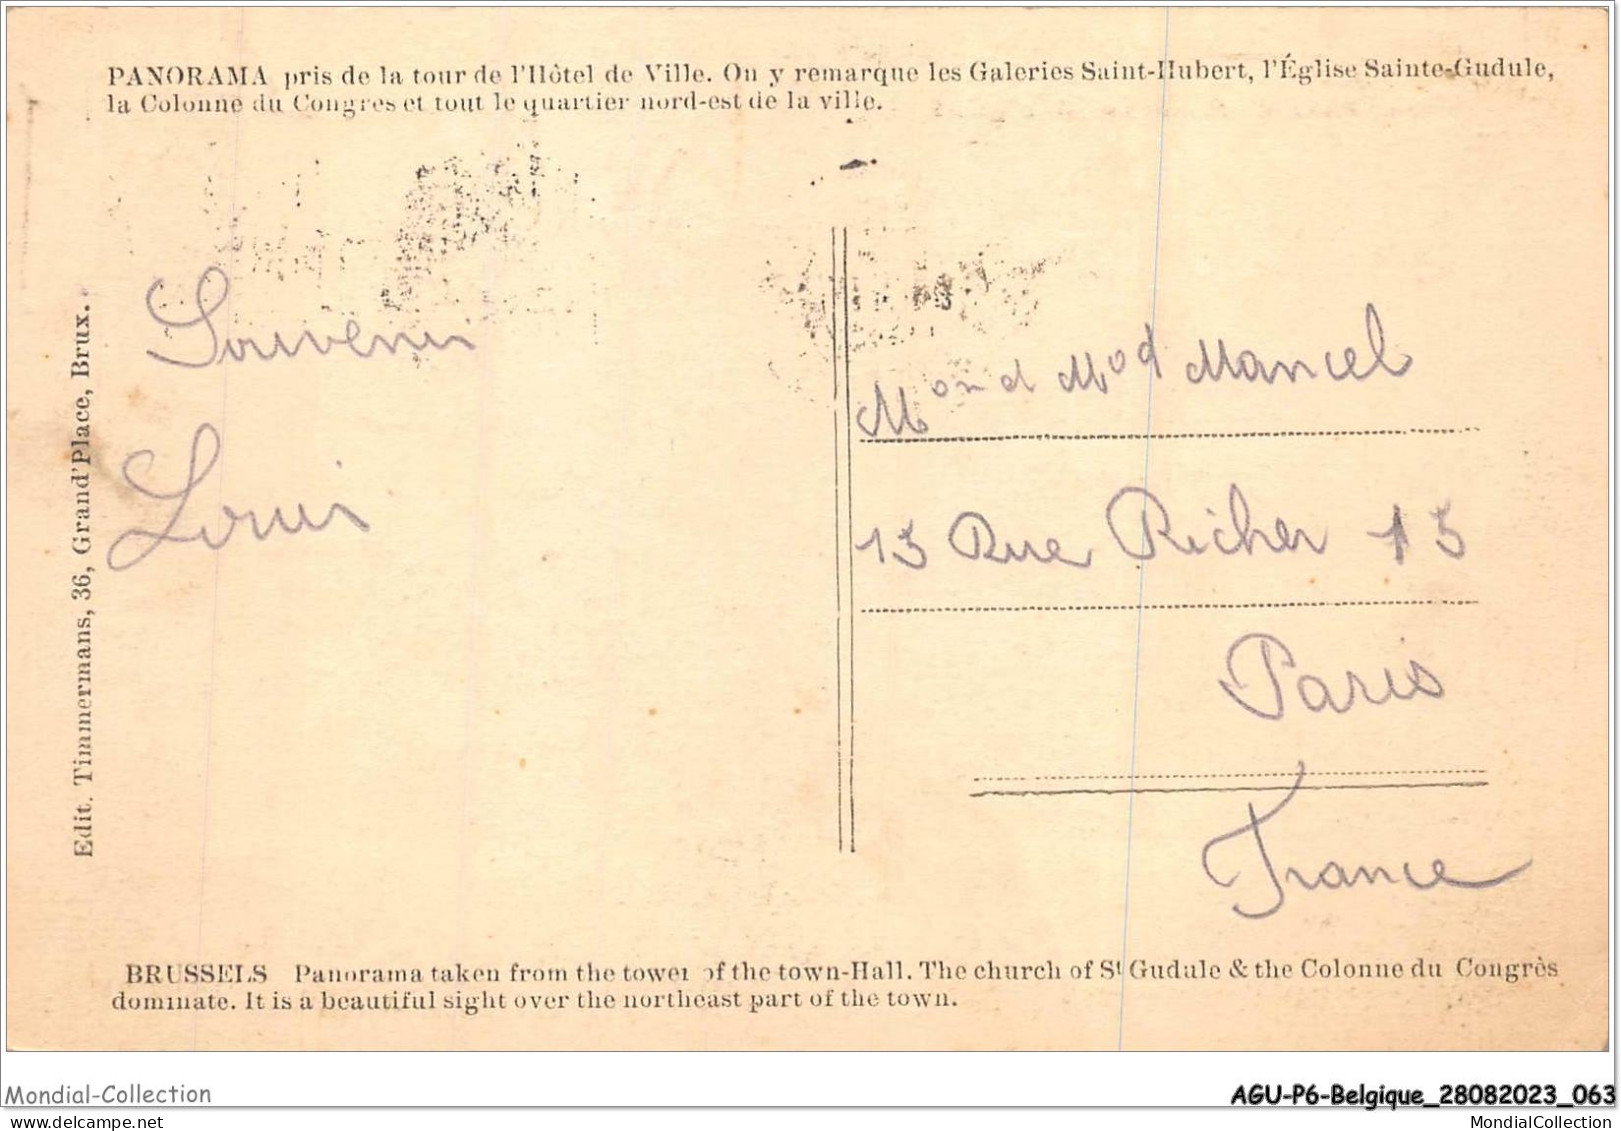 PANORAMA pris de la tour de l'Hôtel de Ville. On y remarque les Galeries Saint-Hubert, l'Église Sainte-Gudule,
la Colonne du Congrès et tout le quartier nord-est de la ville.
Edit. Timmermans, 36, Grand'Place, Brux.
Souvenir
Louis
Mon d Md Mancel
15 Rue Richer 15
Paris
France
BRUSSELS Panorama taken from the tower of the town-Hall. The church of St Gudule & the Colonne du Congrès
dominate. It is a beautiful sight over the northeast part of the town.
Mondial-Collection
AGU-P6-Belgique_28082023_063
www.delcampe.net
MondialCollection